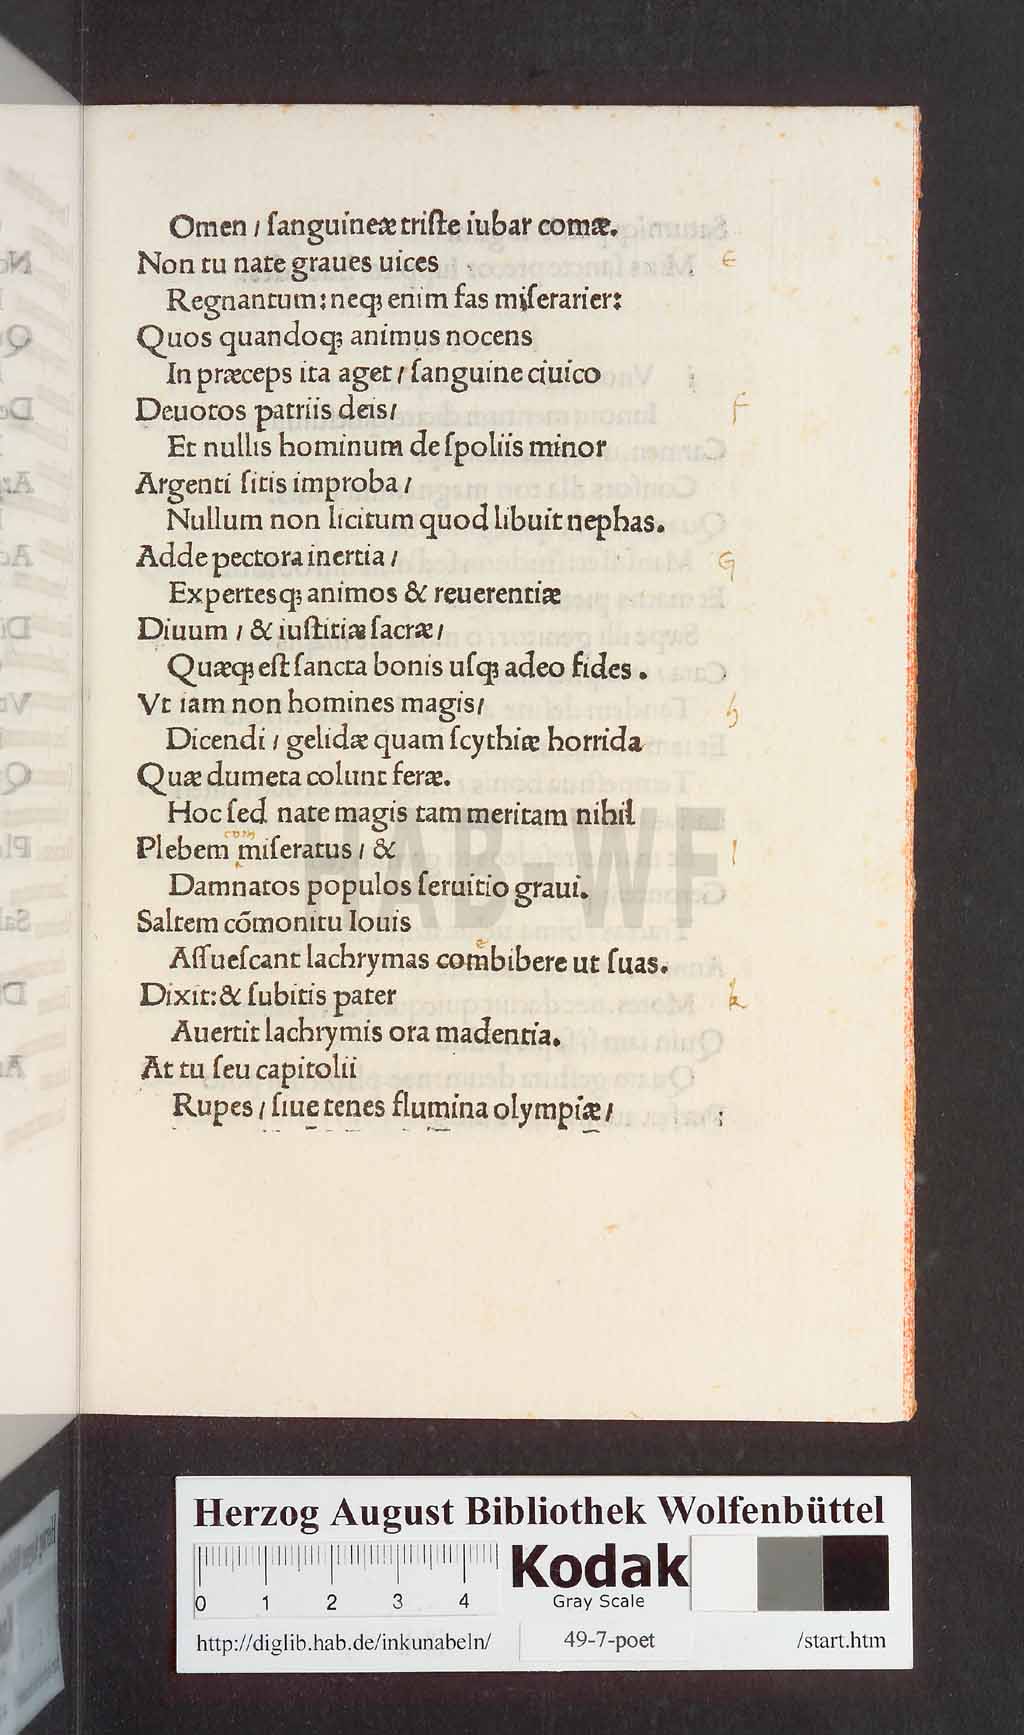 Omen / ſanguineæ triſte iubar comæ.
Non tu nate graues uices
E
Regnantum: neqꝫ enim fas miſerarier:
Quos quandoqꝫ animus nocens
In præceps ita aget / ſanguine ciuico
Deuotos patriis deis/
F
Et nullis hominum de ſpoliis minor
Argenti ſitis improba /
Nullum non licitum quod libuit nephas.
Adde pectora inertia /
G
Expertesqꝫ animos & reuerentiæ
Diuum / & iuſtitiæ ſacræ /
Quæqꝫ eſt ſancta bonis uſqꝫ adeo fides .
Vt iam non homines magis/
h
Dicendi / gelidæ quam ſcythiæ horrida
Quæ dumeta colunt feræ.
Hoc ſed nate magis tam meritam nihil
com
Plebem miſeratus / &
I
Damnatos populos ſeruitio graui.
Saltem cõmonitu Iouis
Aſſueſcant lachrymas combibere ut ſuas.
Dixit: & ſubitis pater
k
Auertit lachrymis ora madentia.
At tu ſeu capitolii
Rupes / ſiue tenes flumina olympiæ /
HAB-WF
Herzog August Bibliothek Wolfenbüttel
0 1 2 3 4
Kodak
Gray Scale
http://diglib.hab.de/inkunabeln/ 49-7-poet /start.htm